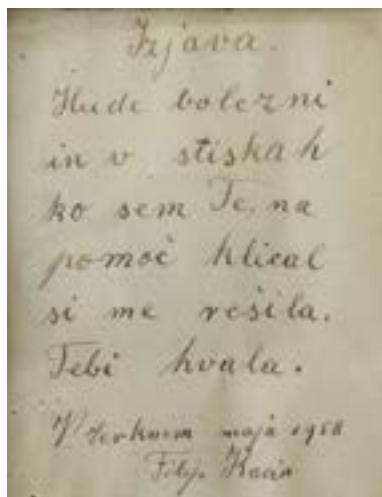 Izjava.
Hude bolezni
in v stiskah
ko sem Te na
pomoč klical
si me rešila.
Tebi hvala.
maja 1958
Filip Kacin